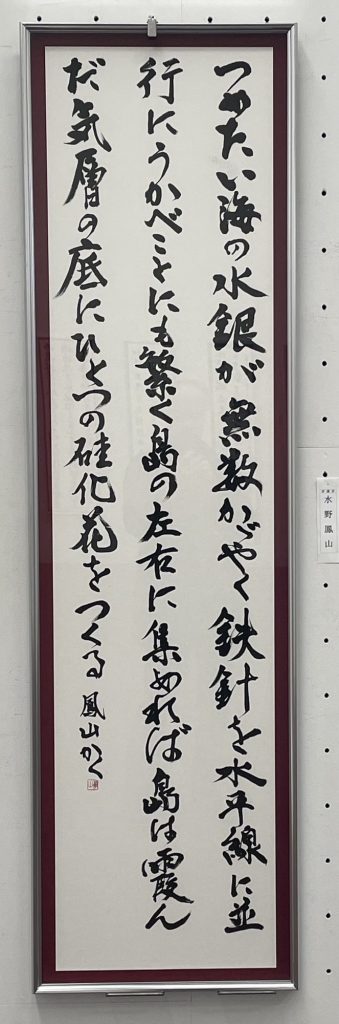 つめたい海の水銀が無数かゞやく鉄針を水平線に並
行にうかべことにも繁く島の左右に集めれば島は霞ん
だ気層の底にひとつの硅化花をつくる 鳳山かく
水野鳳山